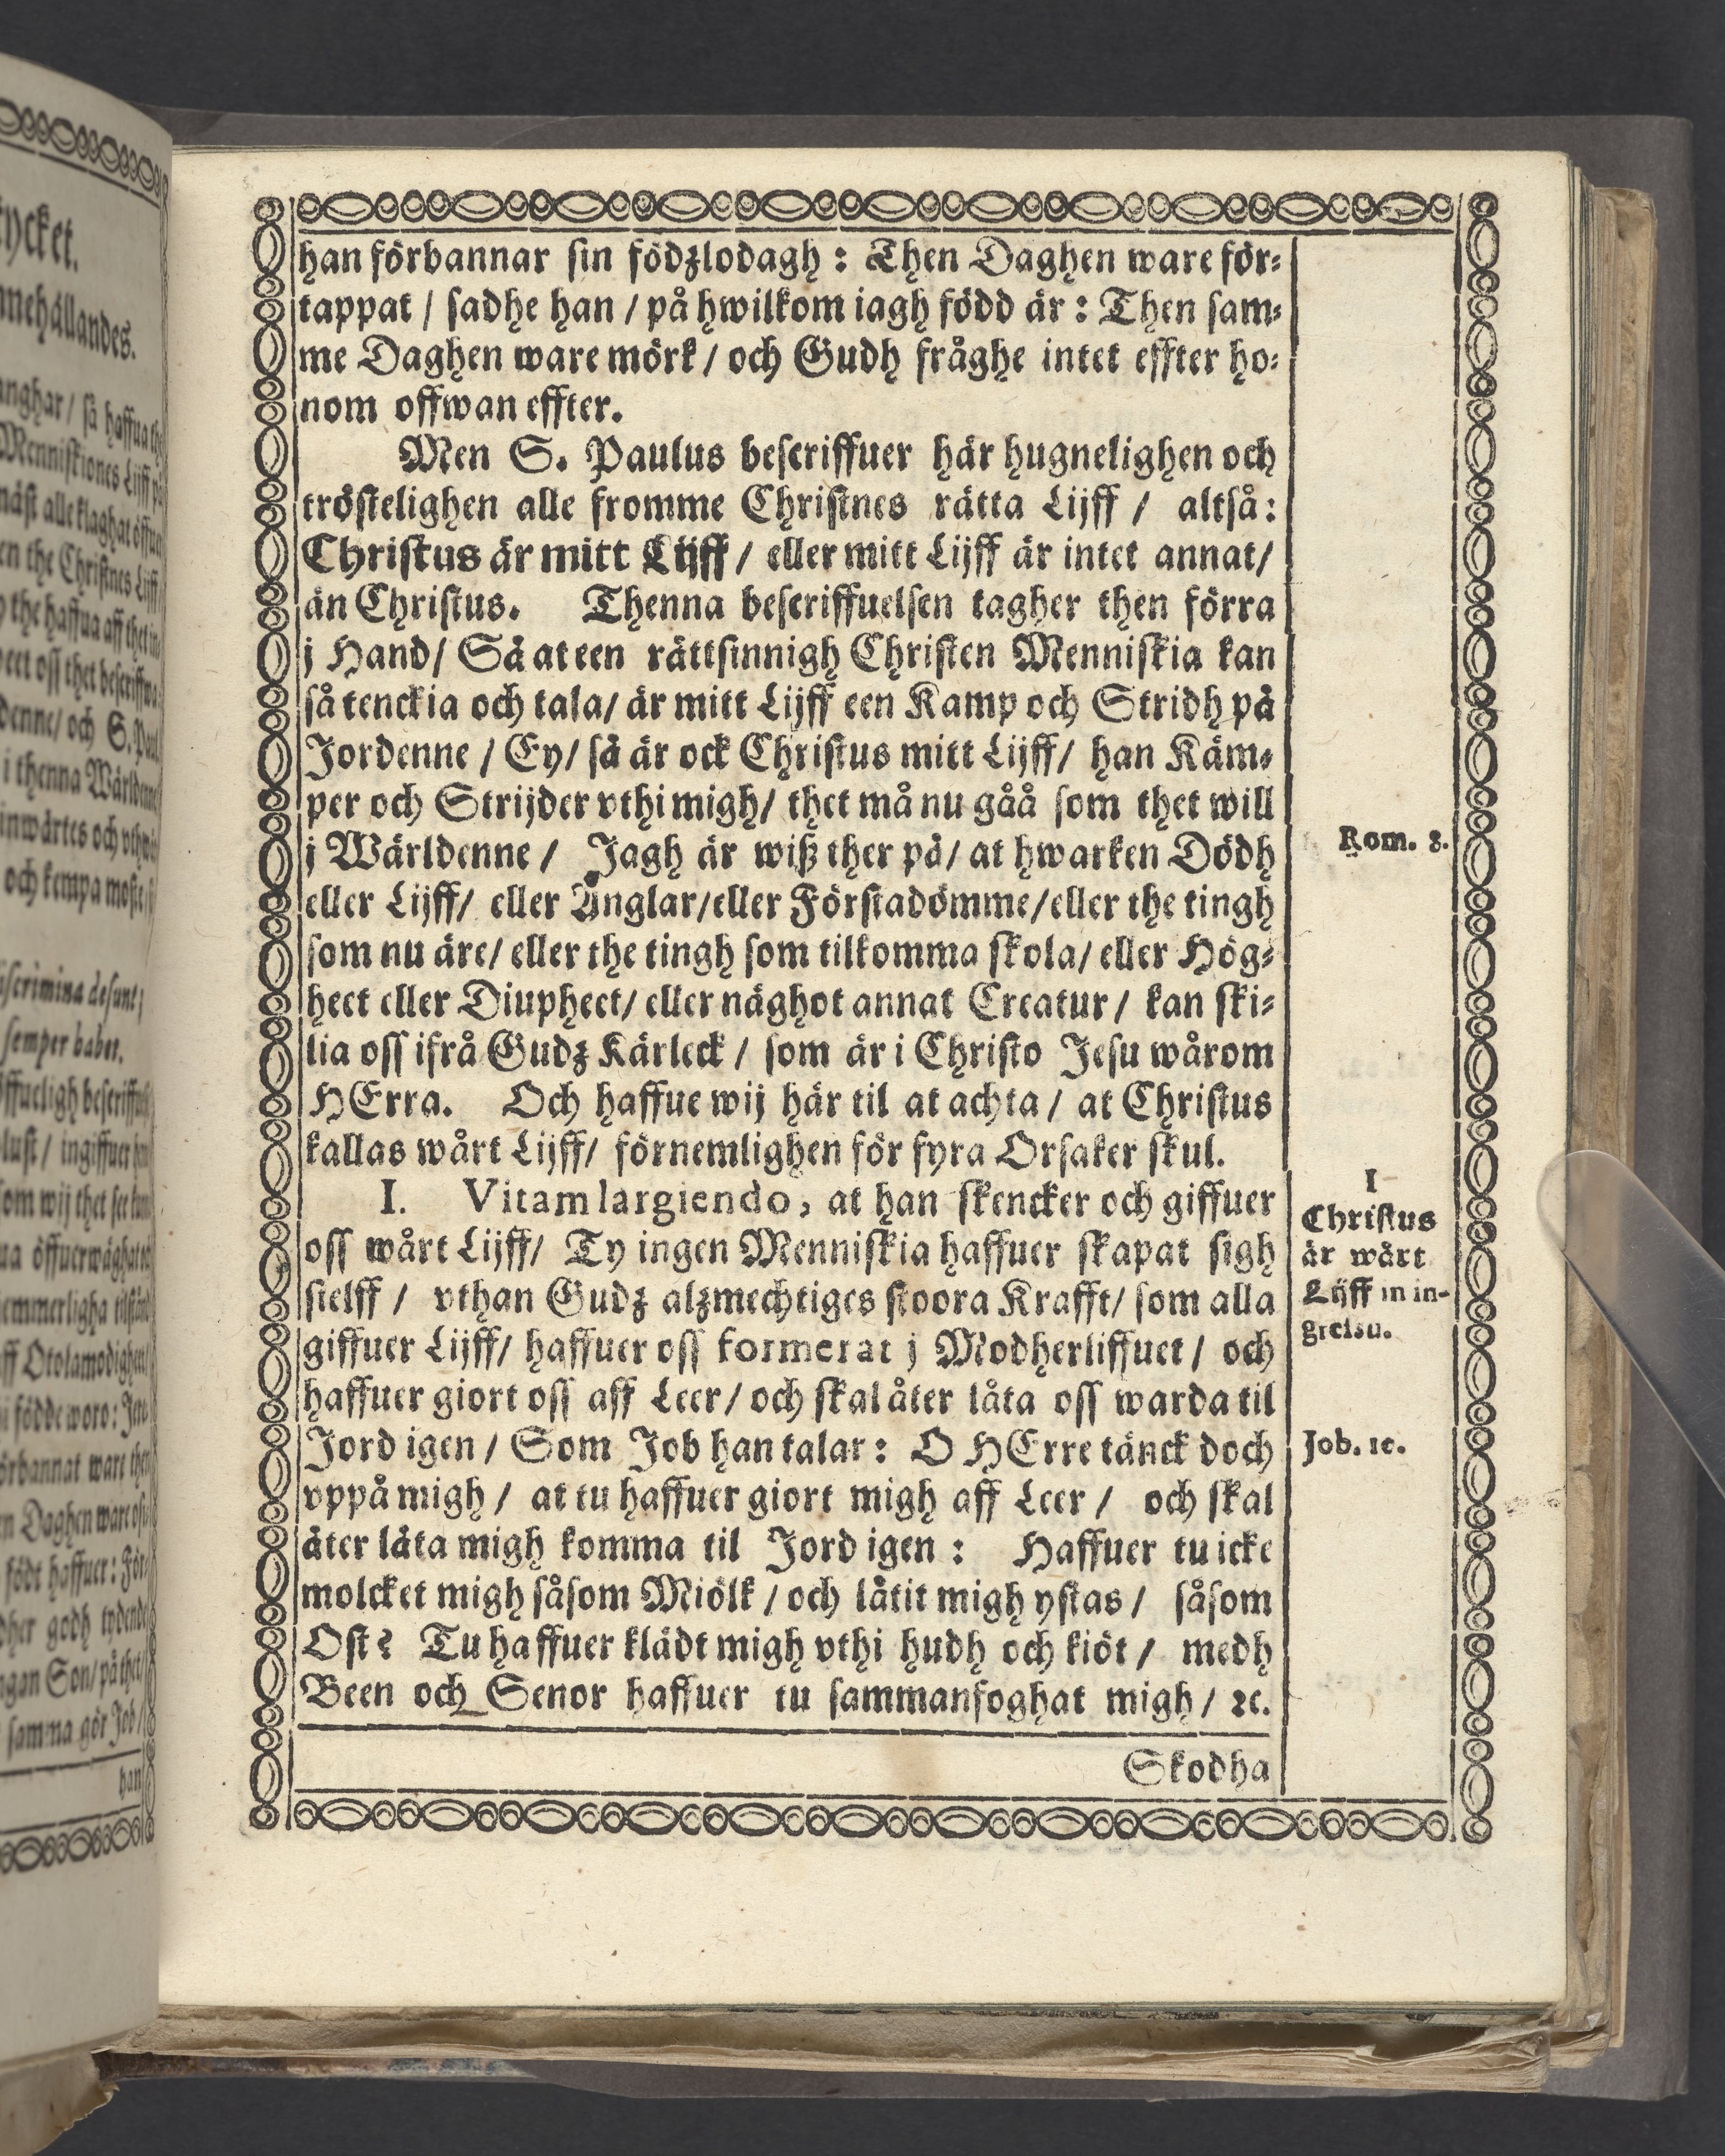 han förbannar sin födzlodagh : Then Daghen ware för-
tappat / sadhe han / på hwilkom iagh född är : Then sam-
me Daghen ware mörk / och Gudh fråghe intet effter ho-
nom offwan effter.
Men S. Paulus bescriffuer här hugnelighen och
tröstelighen alle fromme Christnes rätta Lijff / altså:
Christus är mitt Lijff / eller mitt Lijff är intet annat/
än Christus. Thenna bescriffuelsen tagher then förra
j Hand/ Så at een rättsinnigh Christen Menniskia kan
så tenckia och tala/ är mitt Lijff een Kamp och Stridh på
Jordenne / Ey/ så är ock Christus mitt Lijff/ han Käm-
per och Strijder vthi migh/ thet må nu gåå som thet will
j Wärldenne / Jagh är wiß ther på/ at hwarken Dödh
eller Lijff/ eller Änglar/eller Förstadömme/eller the tingh
som nu äre/ eller the tingh som tilkomma skola/ eller Hög-
heet eller Diupheet/ eller någhot annat Creatur / kan ski-
lia oss ifrå Gudz Kärleck / som är i Christo Jesu wårom
HErra. Och haffue wij här til at achta / at Christus
kallas wårt Lijff/ förnemlighen för fyra Orsaker skul.
I. Vitam largiendo, at han skencker och giffuer
oss wårt Lijff/ Ty ingen Menniskia haffuer skapat sigh
sielff / vthan Gudz alzmechtiges stoora Krafft/ som alla
giffuer Lijff/ haffuer oss formerat j Modherliffuet / och
haffuer giort oss aff Leer / och skal åter låta oss warda til
Jord igen / Som Job han talar : O HErre tänck doch
vppå migh / at tu haffuer giort migh aff Leer / och skal
åter låta migh komma til Jord igen : Haffuer tu icke
molcket migh såsom Miölk / och låtit migh ystas / såsom
Ost? Tu haffuer klädt migh vthi hudh och kiöt / medh
Been och Senor haffuer tu sammanfoghat migh / ꝛc.
Skodha
Rom. 8.
I
Christus
är wårt
Lijff in in-
gressu.
Job. 10.
ycket.
nnehållandes.